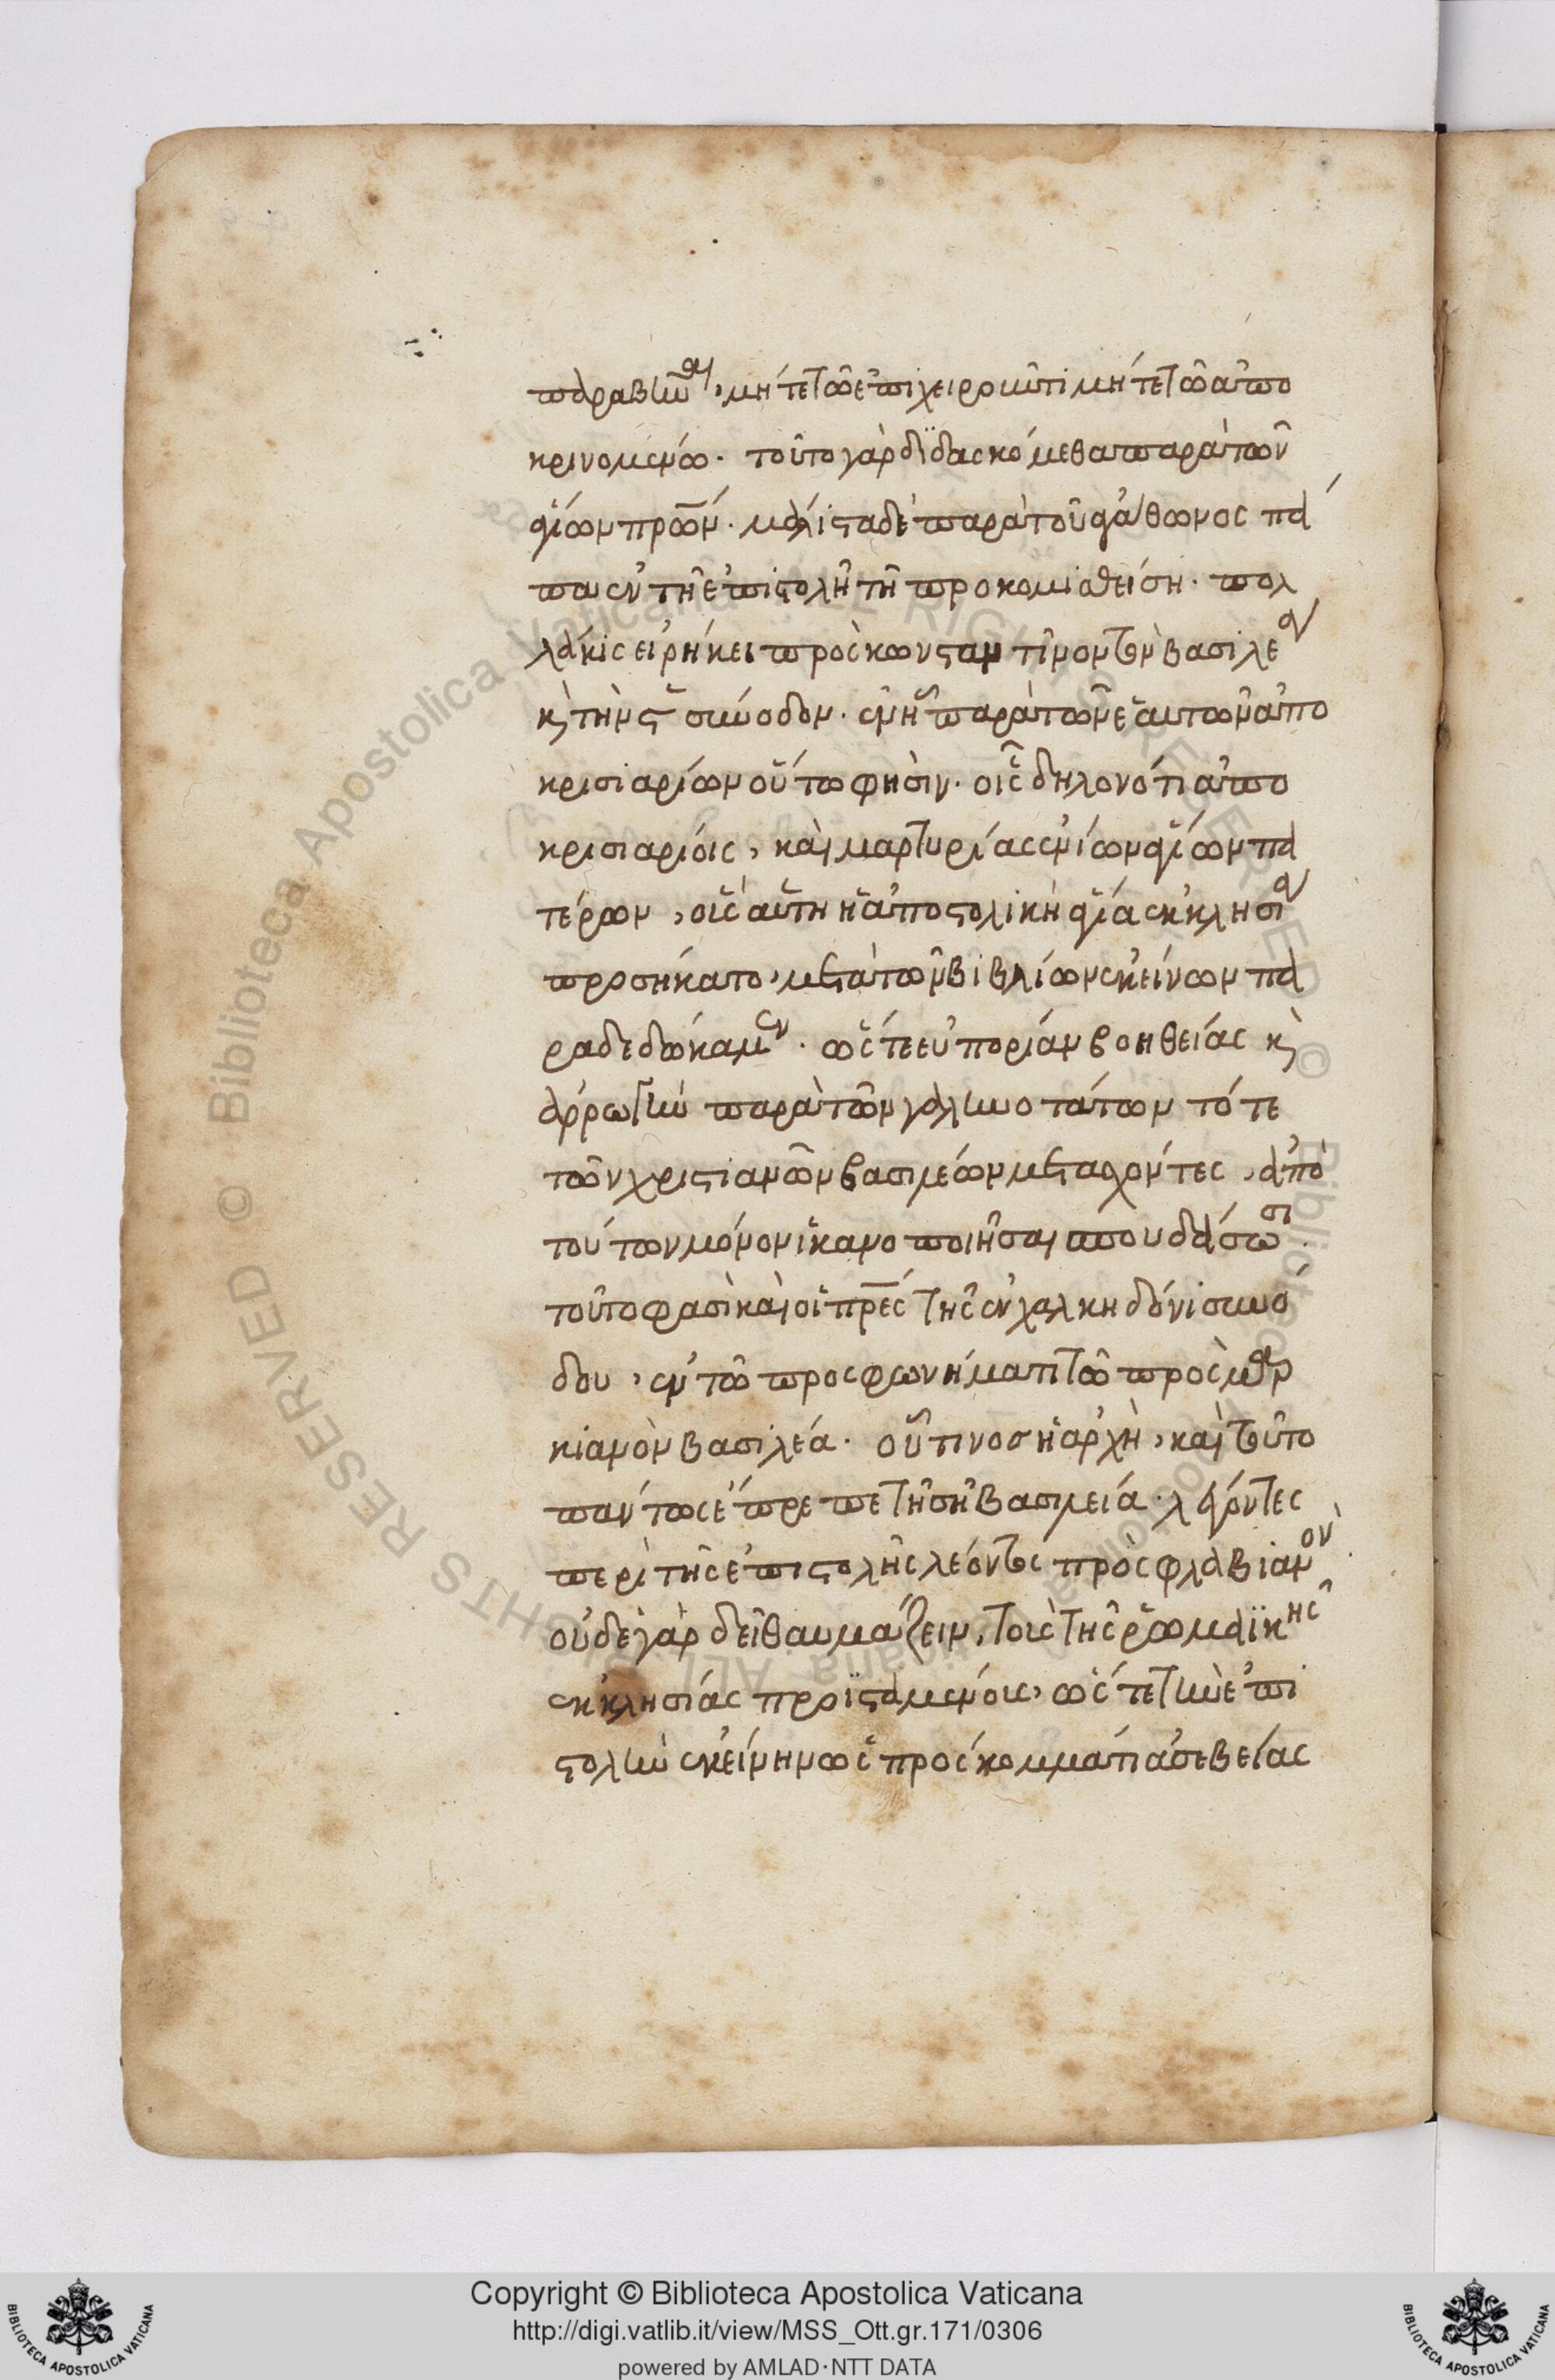 παραβῆναι, μήτε τῶ ἐπιχειροῦντι μήτε τῶ ἀπο
κρινομένω. τοῦτο γὰρ διδασκόμεθα παρὰ τῶν
ἁγίων πρῶν. μάλιστα δὲ παρὰ τοῦ ἀγάθωνος πά
πα ἐν τῆ ἐπιστολῆ τῆ προκομισθείση. πολ
λάκις εἰρήκει πρὸς κωνσταντῖνον τὸν βασιλέα
κ̀ τὴν ς̄ σύνοδον. ἐν ἧ παρὰ τῶν ἑαυτῶν ἀπο
κρισιαρίων οὕτω φησίν. οἷς δηλονότι ἀπο
κρισιαρίοις, καὶ μαρτυρίας ἐνίων ἁγίων πα
τέρων, οἷς αὕτη ἡ ἀποστολικὴ ἁγία ἐκκλησία
προσήκατο, μετὰ τῶν βιβλίων ἐκείνων πα
ραδεδώκαμεν. ὥστε εὐπορίαν βοηθείας κ̀
παρὰ τῶν γαληνοτάτων τότε
τῶν χριστιανῶν βασιλέων μετασχόντες, ἀπὸ
τούτων μόνον ἱκανοποιῆσαι σπουδάσωσι.
τοῦτο φασὶ καὶ οἱ πρες τῆς ἐν χαλκηδόνι συνό
δου, ἐν τῶ προσφωνήματι τῶ πρὸς μαρ
κιανὸν βασιλέα. οὗτινος ἡ ἀρχὴ, καὶ τοῦτο
πάντως ἔπρεπε τῆ σῆ βασιλεία. λέγοντες
περὶ τῆς ἐπιστολῆς λέοντος πρὸς φλαβιανὸν.
οὐδὲ γὰρ δεῖ θαυμάζειν, τοῖς τῆς ῥωμαϊκῆς
ἐκκλησίας προϊσταμένοις, ὥστε τὴν ἐπι
στολὴν ἐκείνην ὡς πρόσκομμά τι ἀσεβείας
Copyright © Biblioteca Apostolica Vaticana
http://digi.vatlib.it/view/MSS_Ott.gr.171/0306
powered by AMLAD·NTT DATA